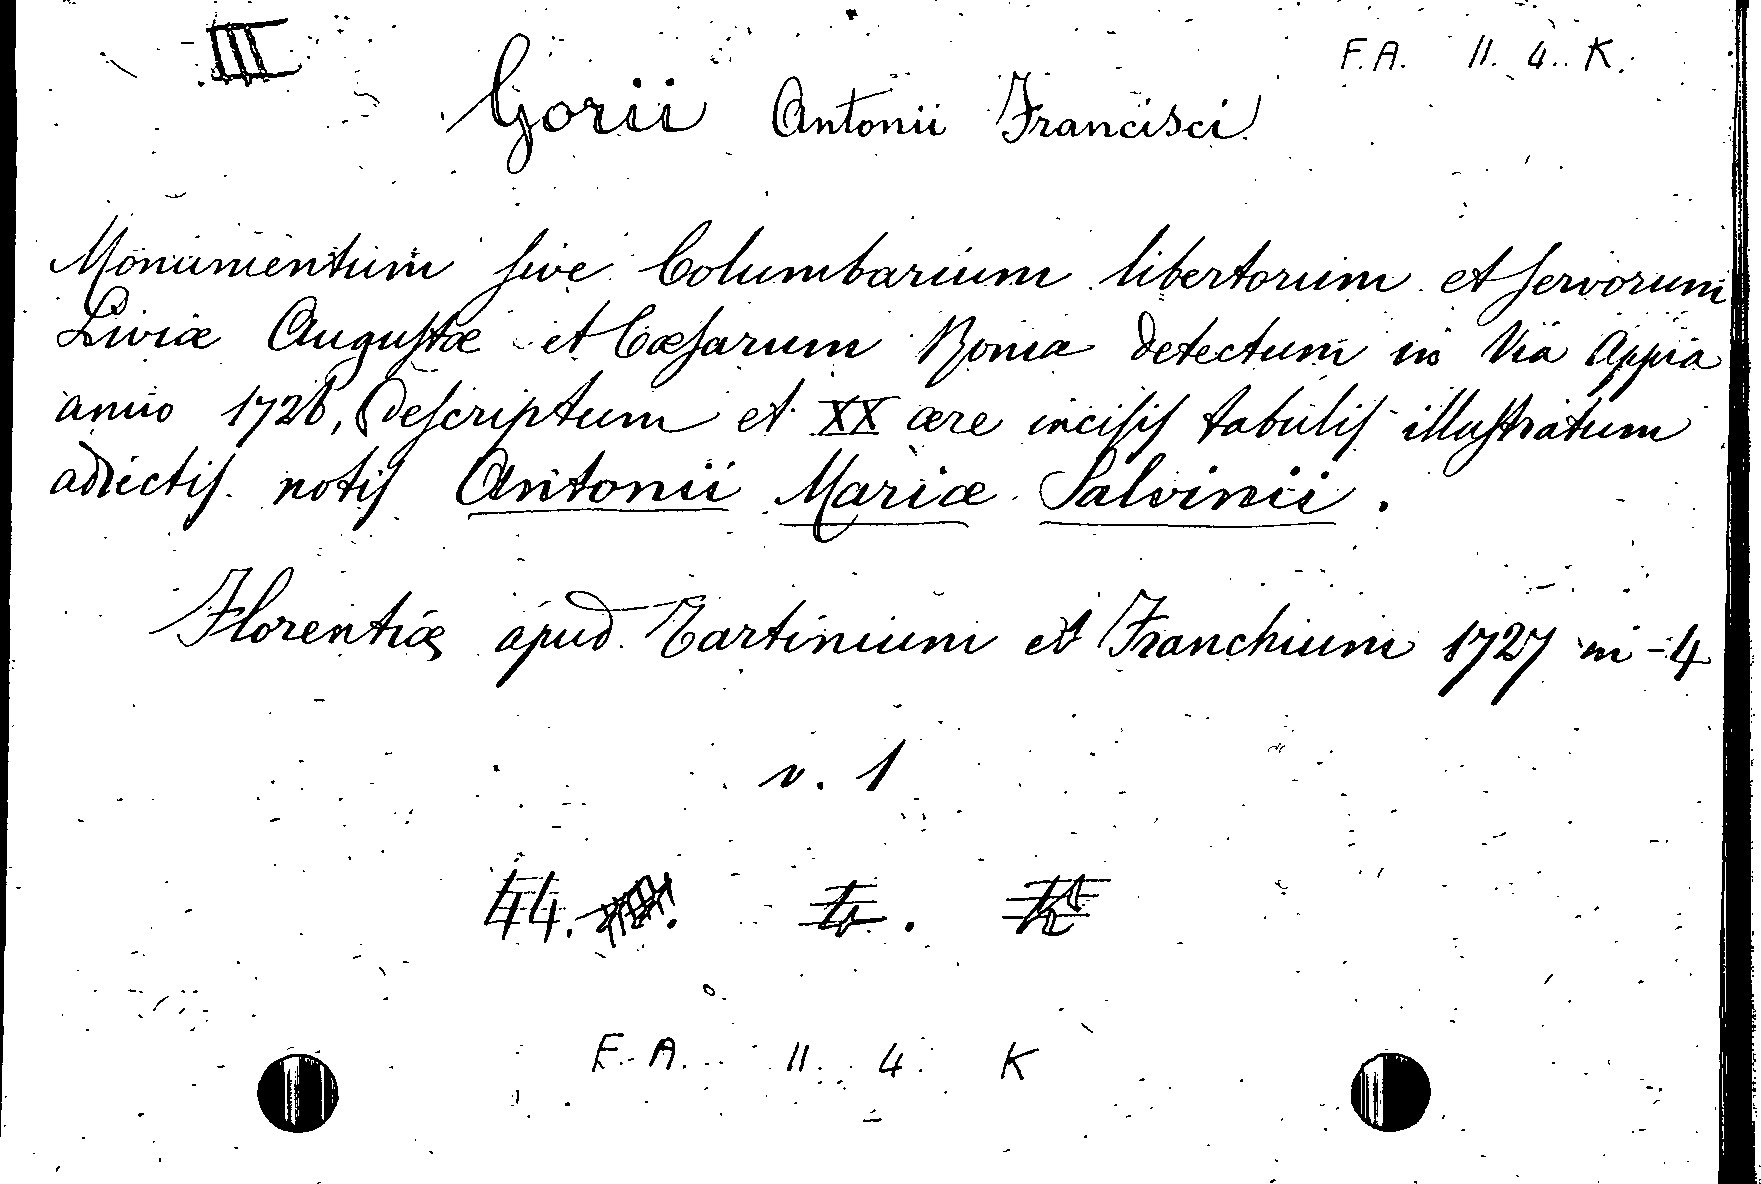 III
F.A. 11. 4. K.
Gorii Antonii Francisci
Monumentum sive Columbarium libertorum et servorum
Liviæ Augustæ et Cæsarum Romæ detectum in Via Appia
anno 1726, descriptum et XX ære incisis tabulis illustratum
adiectis notis Antonii Mariæ Salvinii.
Florentiæ apud Tartinium et Franchium 1727 in-4
v. 1
44.
F. A. 11. 4. K